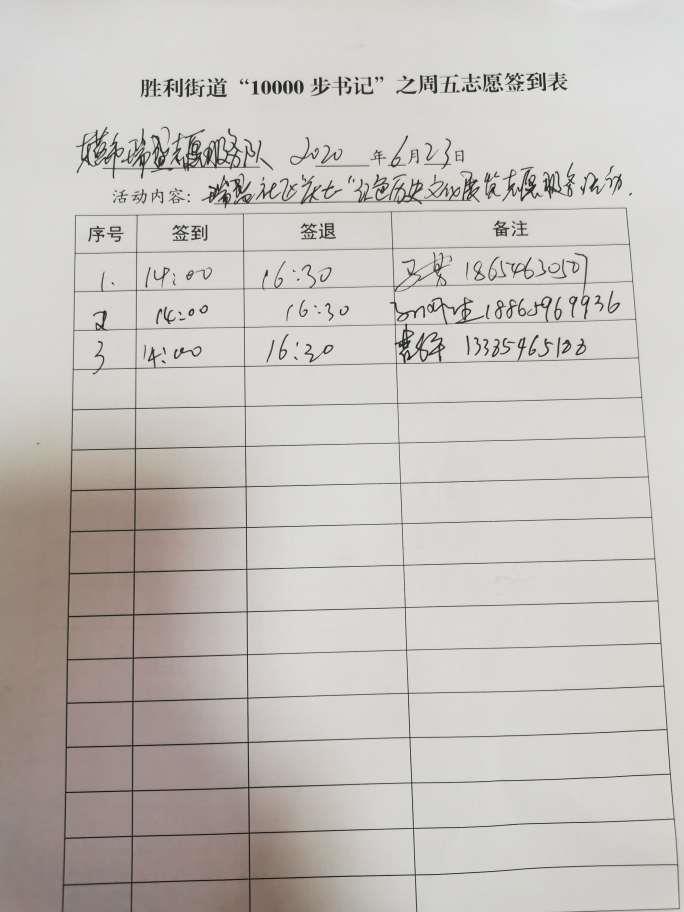 胜利街道“10000步书记”之周五志愿签到表
瑞盈志愿服务队 2020年6月23日
活动内容：瑞盈社区庆七一红色历史文化展览志愿服务活动.
序号 签到 签退 备注
1. 14:00 16:30 18654630507
2 14:00 16:30 18865969936
3 14:00 16:30